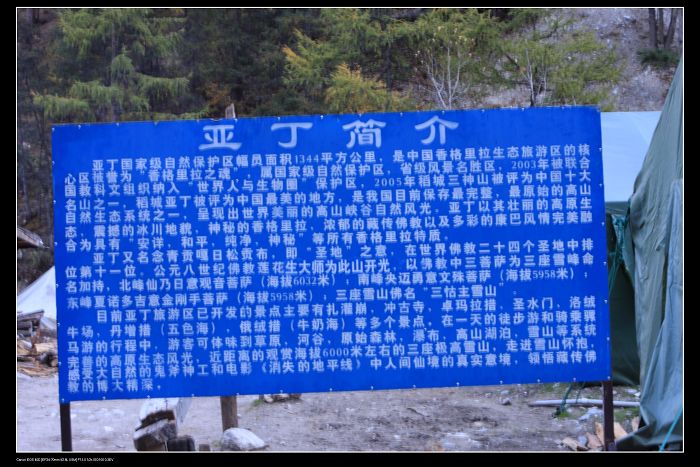 亚丁简介
亚丁国家级自然保护区幅员面积1344平方公里，是中国香格里拉生态旅游区的核
心区被誉为"香格里拉之魂"，属国家级自然保护区，省级风景名胜区，2003年被联合
国教科文组织纳入"世界人与生物圈"保护区，2005年稻城三神山被评为中国十大
名山之一，稻城亚丁被评为中国最美的地方，是我国目前保存最完整、最原始的高山
自然生态系统之一，呈现出世界美丽的高山峡谷自然风光，亚丁以其壮丽的高原生
态，震撼的冰川地貌，神秘的香格里拉，浓郁的藏传佛教以及多彩的康巴风情完美融
合为具有"安详，和平，纯净，神秘"等所有香格里拉特质。
亚丁又名念青贡嘎日松贡布，即"圣地"之意，在世界佛教二十四个圣地中排
位第十一位。公元八世纪佛教莲花生大师为此山开光，以佛教中三菩萨为三座雪峰命
名加持，北峰仙乃日意观音菩萨（海拔6032米）；南峰央迈勇意文殊菩萨（海拔5958米）；
东峰夏诺多吉意金刚手菩萨（海拔5958米）；三座雪山佛名"三怙主雪山"。
目前亚丁旅游区已开发的景点主要有扎灌崩、冲古寺、卓玛拉措、圣水门、洛绒
牛场、丹增措（五色海）、俄绒措（牛奶海）等多个景点，在一天的徒步游和骑乘骡
马游的行程中，游客可体味到草原、河谷、原始森林、瀑布、高山湖泊、雪山等系统
完善的高原生态风光，近距离的观赏海拔6000米左右的三座极高雪山，走进雪山怀抱，
感受大自然的鬼斧神工和电影《消失的地平线》中人间仙境的真实意境，领悟藏传佛
教的博大精深。